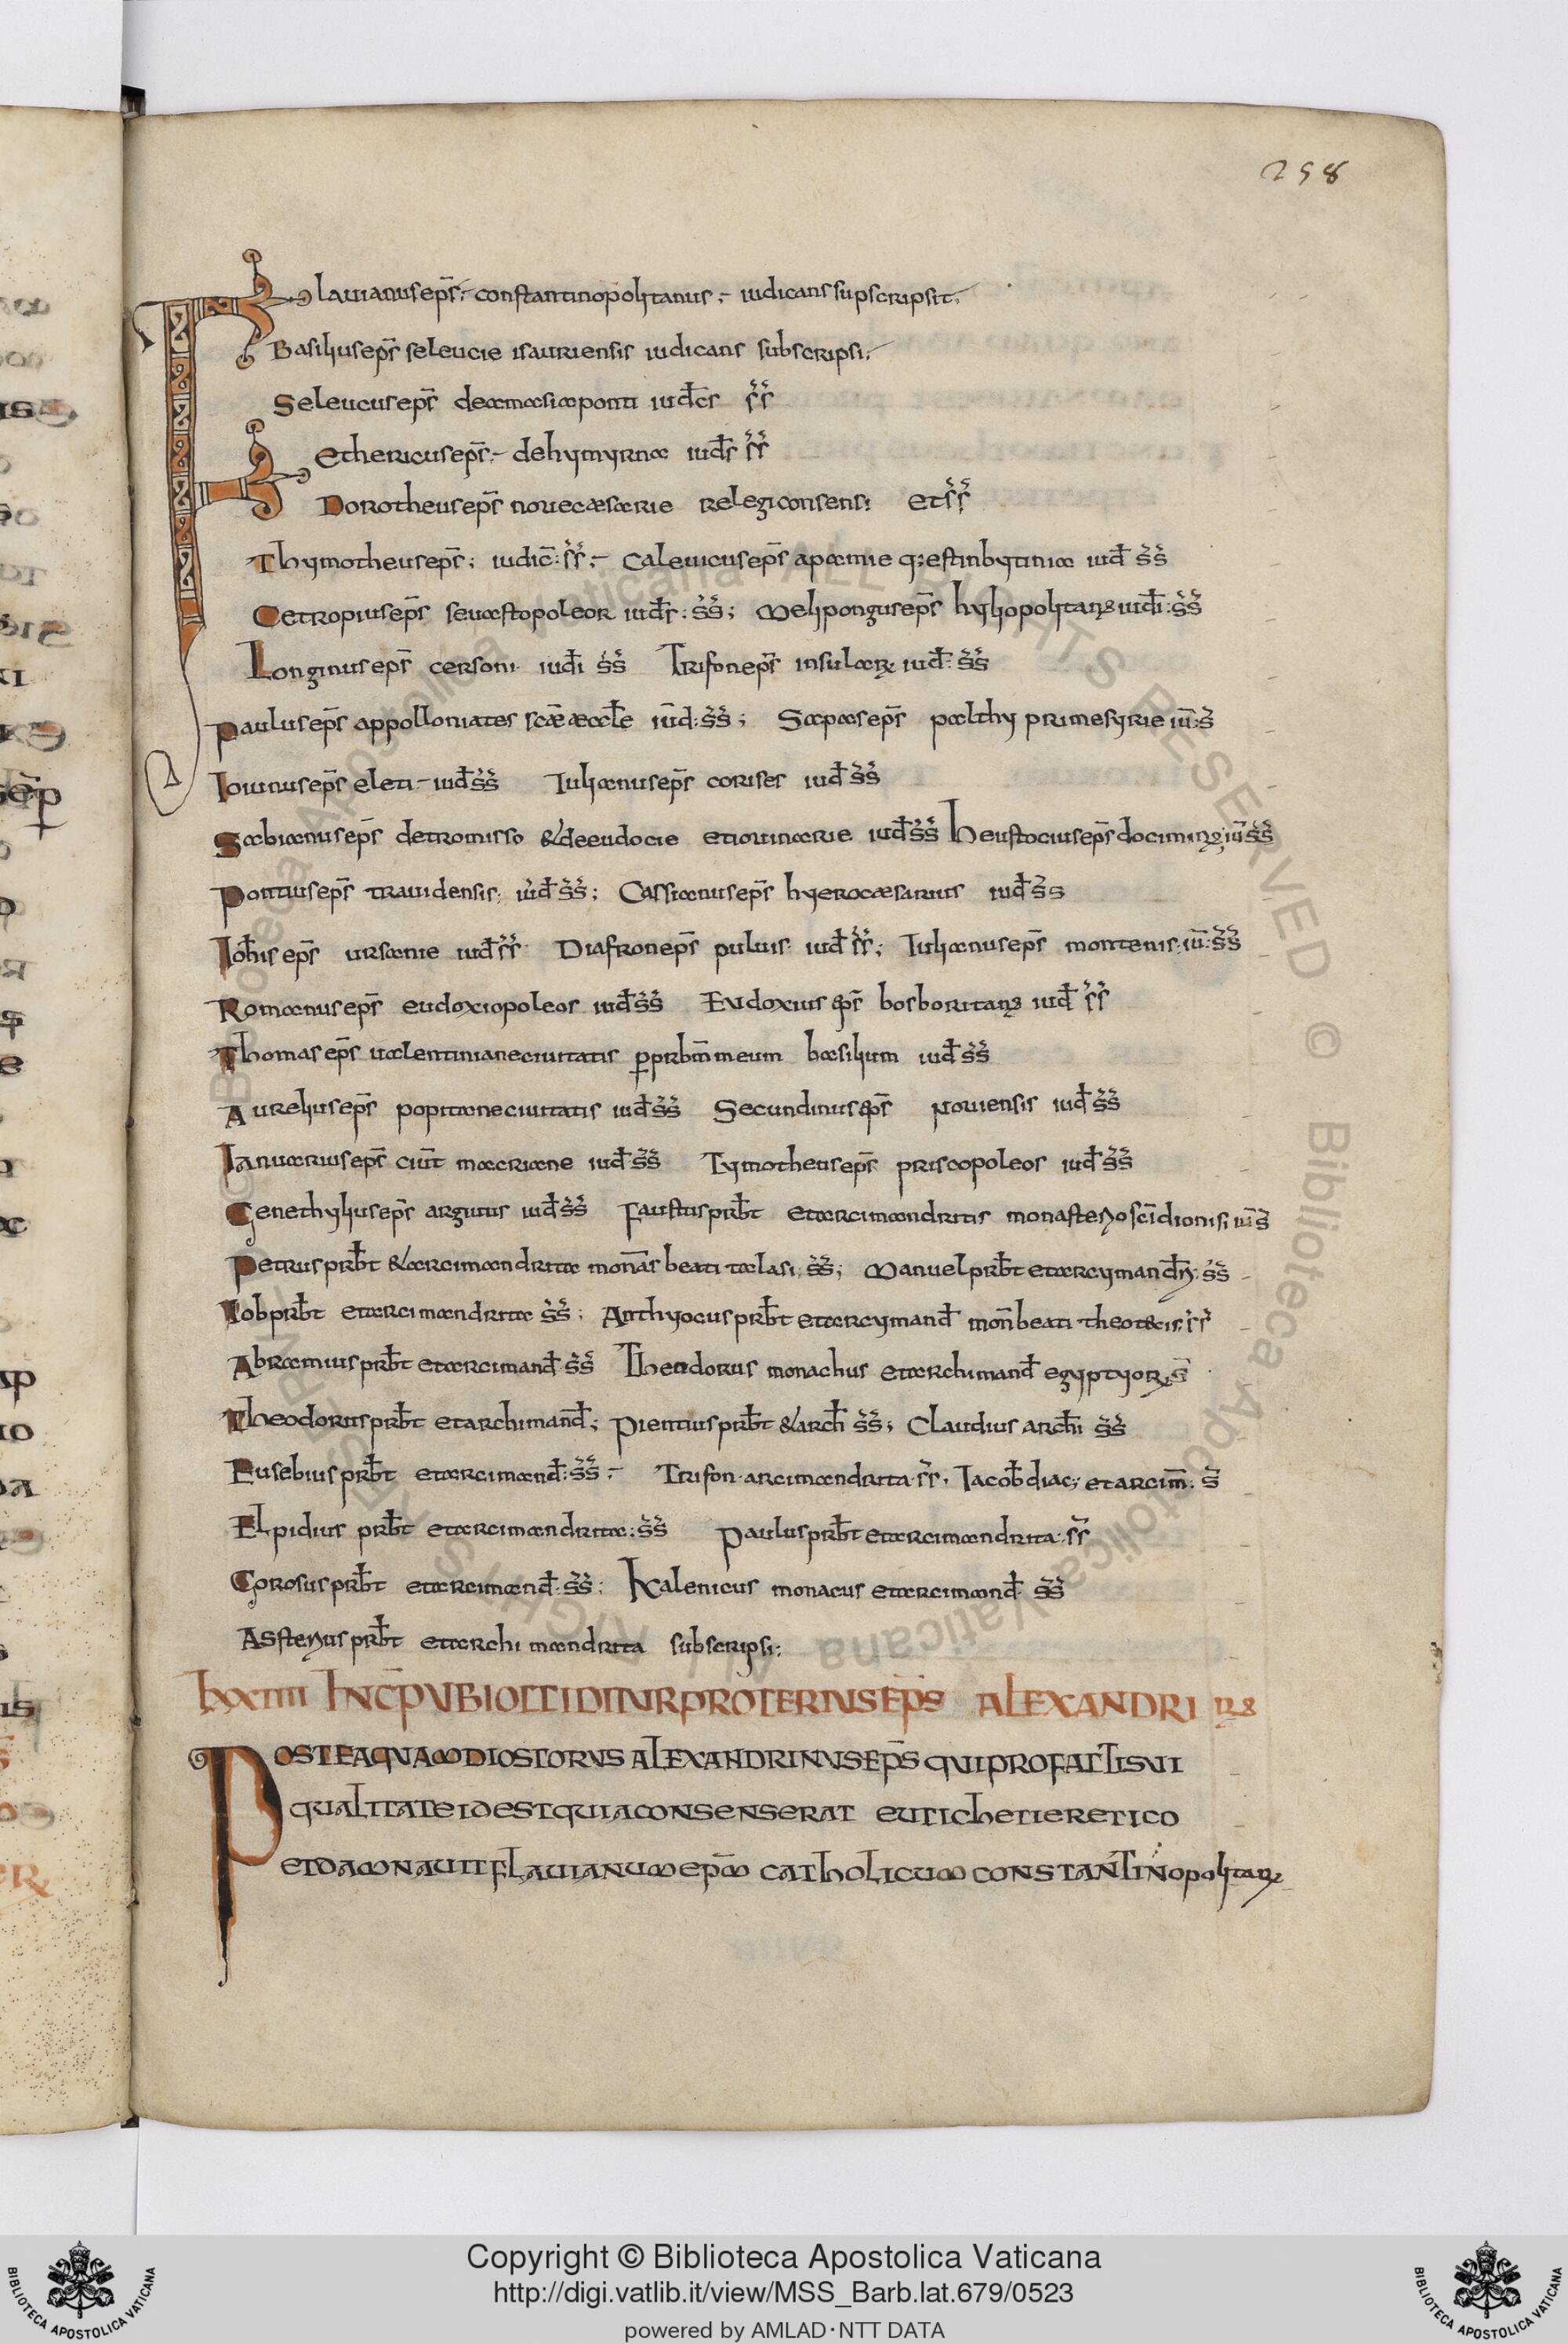 258
Flauianus ep̄s; constantinopolitanus; iudicans supscripsit;
Basilius ep̄s seleucie isauriensis iudicans subscripsi;
Seleucus ep̄s de amasia ponti iud̄cs s̄s̄
ethericus ep̄s de hymyrna iud̄s s̄s̄
Dorotheus ep̄s nouecæsarie relegi consensi et s̄s̄
Thymotheus ep̄s; iudic̄: s̄s̄; Caleuicus ep̄s apamie q; est in bytinia iud̄ s̄s̄
Cetropius ep̄s seuastopoleor iud̄s: s̄s̄; Melipongus ep̄s hyliopolitanꝰ iud̄i: s̄s̄
Longinus ep̄s cersoni iud̄i s̄s̄ Trifon ep̄s insularꝝ iud̄: s̄s̄
Paulus ep̄s appolloniates scǣ æccl̄e iūd: s̄s̄; Sapas ep̄s palthy prime syrie iū: s̄
Iouinus ep̄s eleti iud̄ s̄s̄ Iulianus ep̄s corises iud̄ s̄s̄
Sabianus ep̄s de tromisso & de eudocie et iouinarie iud̄ s̄s̄ heustocius ep̄s docimi iū s̄s̄
Pontius ep̄s trauidensis; iud̄ s̄s̄; Cassianus ep̄s hyerocæsarius iud̄ s̄s
Ioh̄is ep̄s ursanie iud̄ s̄s̄ Diafron ep̄s puluis iud̄ s̄s̄; Iulianus ep̄s montenis; iū: s̄s̄
Romanus ep̄s eudoxiopoleos iud̄ s̄s̄ Eudoxius ep̄s bosboritanꝰ iud̄ s̄s̄
Thomas ep̄s ualentiniane ciuitatis ꝑ prbm̄ meum basilium iud̄ s̄s̄
Aurelius ep̄s popitane ciuitatis iud̄ s̄s̄ Secundinus ep̄s nouensis iud̄ s̄s̄
Ianuarius ep̄s ciūt macriane iud̄ s̄s̄ Tymotheus ep̄s priscopoleos iud̄ s̄s̄
Genethylius ep̄s arguus iud̄ s̄s̄ Faustus prb̄t et arcimandritis monasterio sc̄i dionisi iū s̄
Petrus prb̄t & arcimandrita monās beati talasi; s̄s̄; Manuel prb̄t et arcymand̄ri: s̄s̄
Iob prb̄t et arcimandrita s̄s̄; Anthyocus prb̄t et arcymand̄ mon̄ beati theotecis; s̄s̄
Abramius prb̄t et arcimand̄ s̄s̄ Theodorus monachus et archimand̄ egyptyorꝝ s̄
Theodorus prb̄t et archimand̄; Pientius prb̄t & arch̄ s̄s̄; Claudius arch̄i s̄s̄
Eusebius prb̄t et arcimand̄: s̄s̄; Trifon arcimandrita s̄s̄. Iacob̄ diac; et arcim̄: s̄
Elpidius prb̄t et arcimandrita: s̄s̄ Paulus prb̄t et arcimandrita: s̄s̄
Corosus prb̄t et arcimand̄: s̄s̄; Kalenicus monacus et arcimand̄ s̄s̄
Asterius prb̄t et archimandrita subscripsi;
lxxiiii INC̄P UBI OCCIDITUR PROTERIUS EP̄S ALEXANDRINꝰ
POSTEAQUAM DIOSCORUS ALEXANDRINUS EP̄S QUI PRO FACTI SUI
QUALITATE ID EST QUIA CONSENSERAT EUTICHETI ERETICO
ET DAMNAUIT FLAUIANUM EP̄M CATHOLICUM CONSTANTINopolitanꝝ
Copyright © Biblioteca Apostolica Vaticana
http://digi.vatlib.it/view/MSS_Barb.lat.679/0523
powered by AMLAD·NTT DATA
BIBLIOTECA APOSTOLICA VATICANA
BIBLIOTECA APOSTOLICA VATICANA